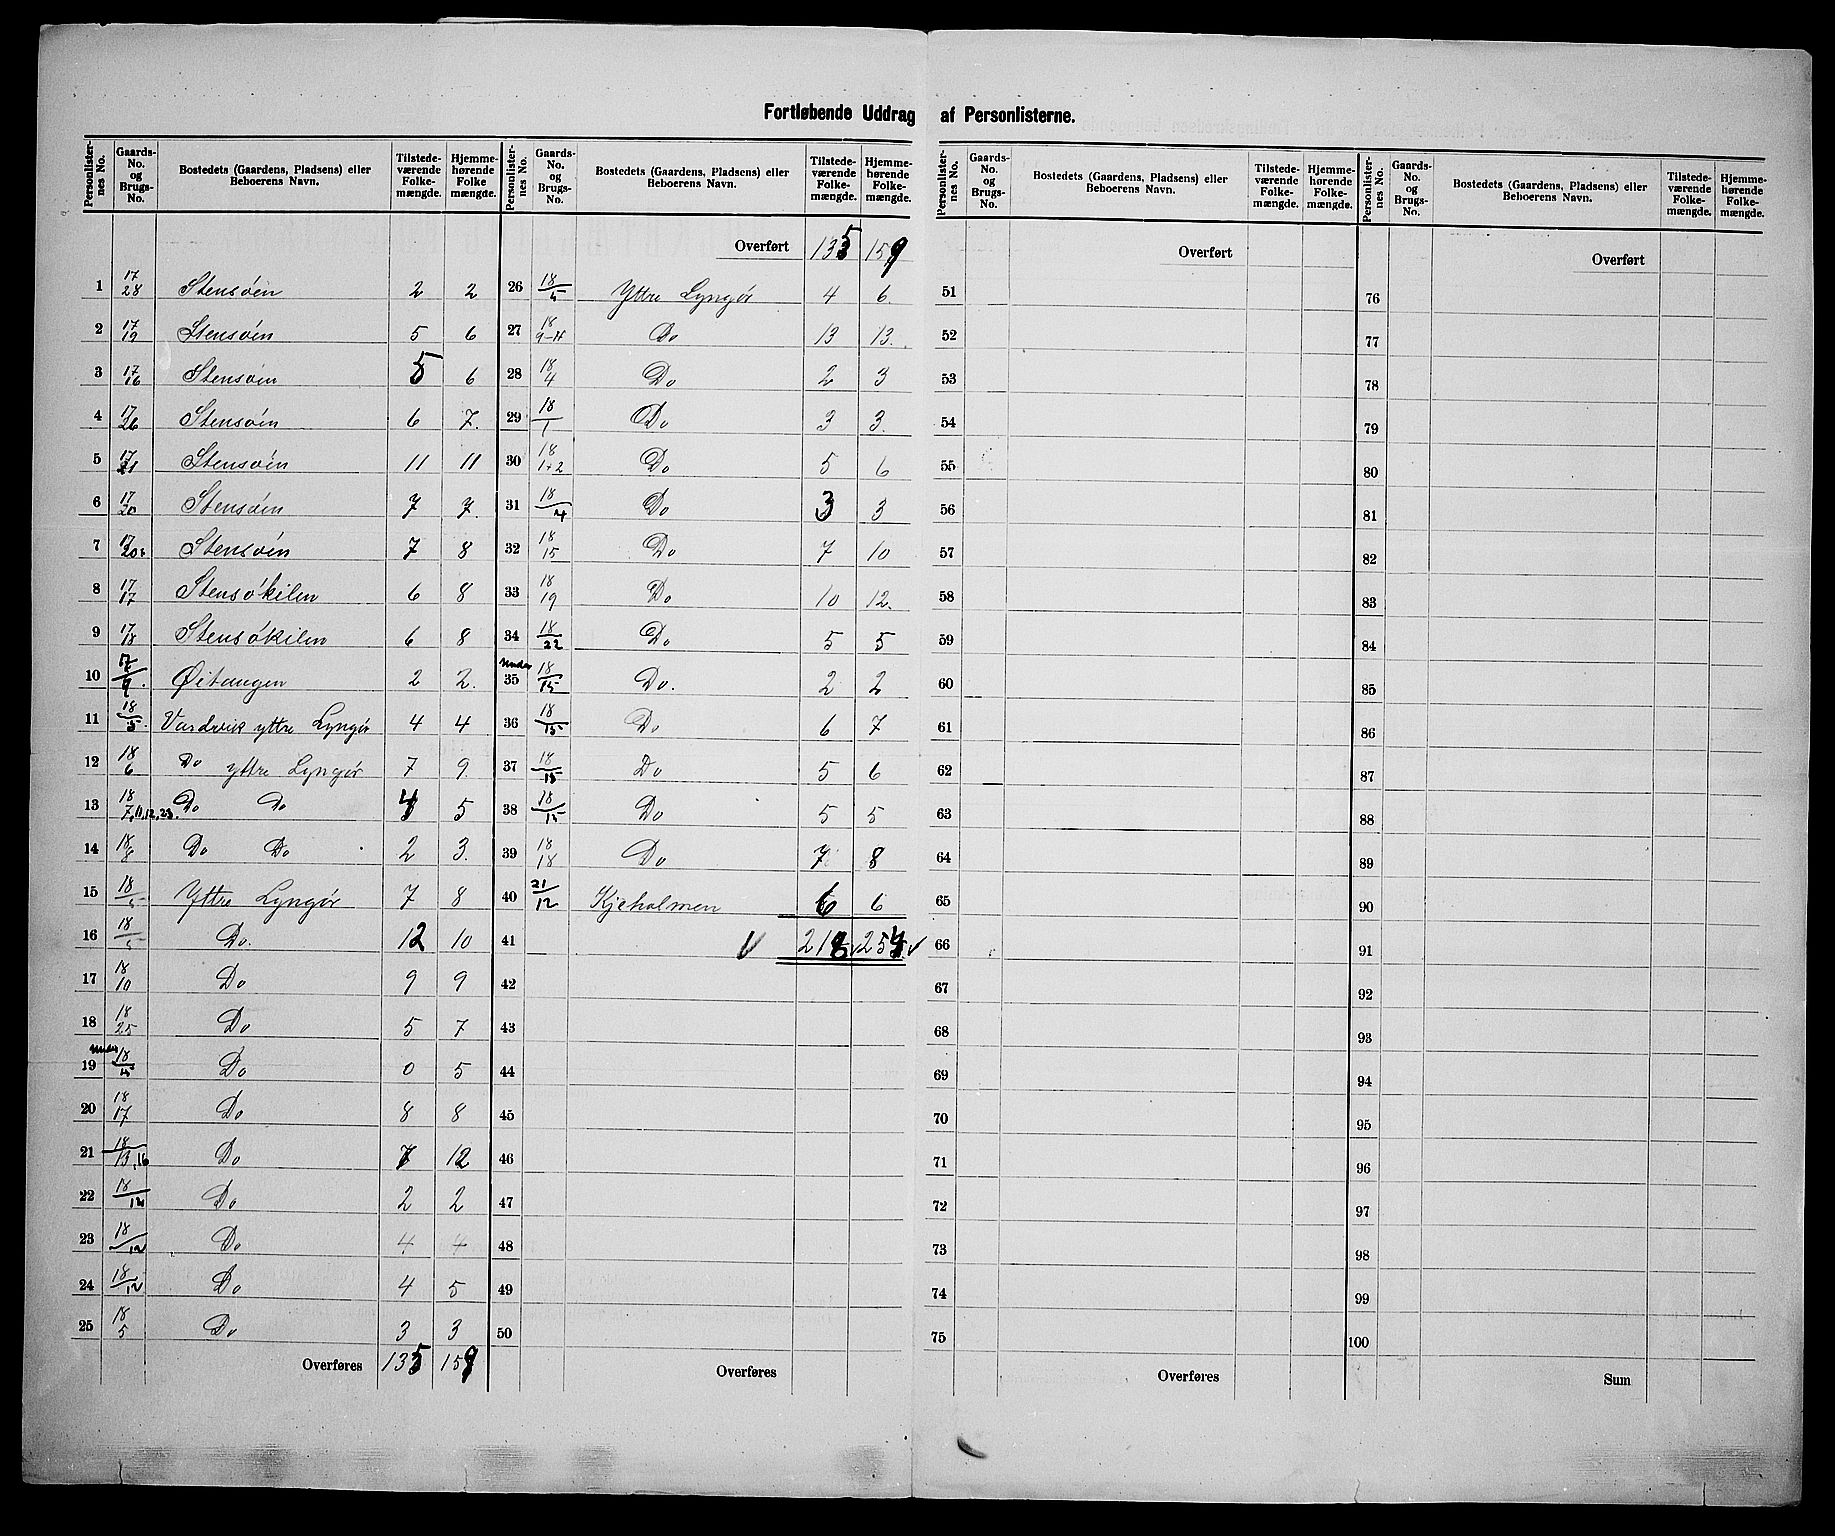 Fortløbende Uddrag af Personlisterne.
Personlisternes No. Gaards-No. og Brugs-No. Bostedets (Gaardens, Pladsens) eller Beboerens Navn. Tilstedeværende Folkemængde. Hjemmehørende Folkemængde.
1 17/28 Stensøen 2 2
2 17/19 Stensøen 5 6
3 17/16 Stensøen 5 6
4 17/26 Stensøen 6 7.
5 17/21 Stensøen 11 11
6 17/20 Stensøen 7 7.
7 17/20 Stensøen 7 8
8 17/17 Stensøkilen 6 8
9 17/18 Stensøkilen 6 8
10 17/9. Øitangen 2 2.
11 18/5. Vardevik yttre Lyngør 4 4
12 18/6 Do yttre Lyngør 7 9.
13 18/7,11,12,23. Do Do 4 5
14 18/8 Do Do 2 3.
15 18/5 Yttre Lyngør 7 8
16 18/5 Do. 12 10
17 18/10 Do 9 9
18 18/25 Do 5 7
19 under 18/5 Do 0 5
20 18/17 Do 8 8
21 18/13,16 Do 7 12
22 18/12 Do 2 2
23 18/12 Do 4 4
24 18/12 Do 4 5
25 18/5 Do 3 3
Overføres 135 159
Personlisternes No. Gaards-No. og Brugs-No. Bostedets (Gaardens, Pladsens) eller Beboerens Navn. Tilstedeværende Folkemængde. Hjemmehørende Folkemængde.
Overført 135 159
26 18/5 Yttre Lyngør 4 6.
27 18/9-11 Do 13 13.
28 18/4 Do 2 3
29 18/1 Do 3 3.
30 18/1+2 Do 5 6
31 18/14 Do 3 3
32 18/15 Do 7 10
33 18/19 Do 10 12.
34 18/22 Do 5 5
35 under 18/15 Do. 2 2
36 18/15 Do 6 7
37 18/15 Do 5 6
38 18/15 Do 5 5
39 18/18 Do 7 8
40 21/12 Kjeholmen 6 6
41 218 254
42
43
44
45
46
47
48
49
50
Overføres
Personlisternes No. Gaards-No. og Brugs-No. Bostedets (Gaardens, Pladsens) eller Beboerens Navn. Tilstedeværende Folkemængde. Hjemmehørende Folkemængde.
Overført
51
52
53
54
55
56
57
58
59
60
61
62
63
64
65
66
67
68
69
70
71
72
73
74
75
Overføres
Personlisternes No. Gaards-No. og Brugs-No. Bostedets (Gaardens, Pladsens) eller Beboerens Navn. Tilstedeværende Folkemængde. Hjemmehørende Folkemængde.
Overført
76
77
78
79
80
81
82
83
84
85
86
87
88
89
90
91
92
93
94
95
96
97
98
99
100
Sum